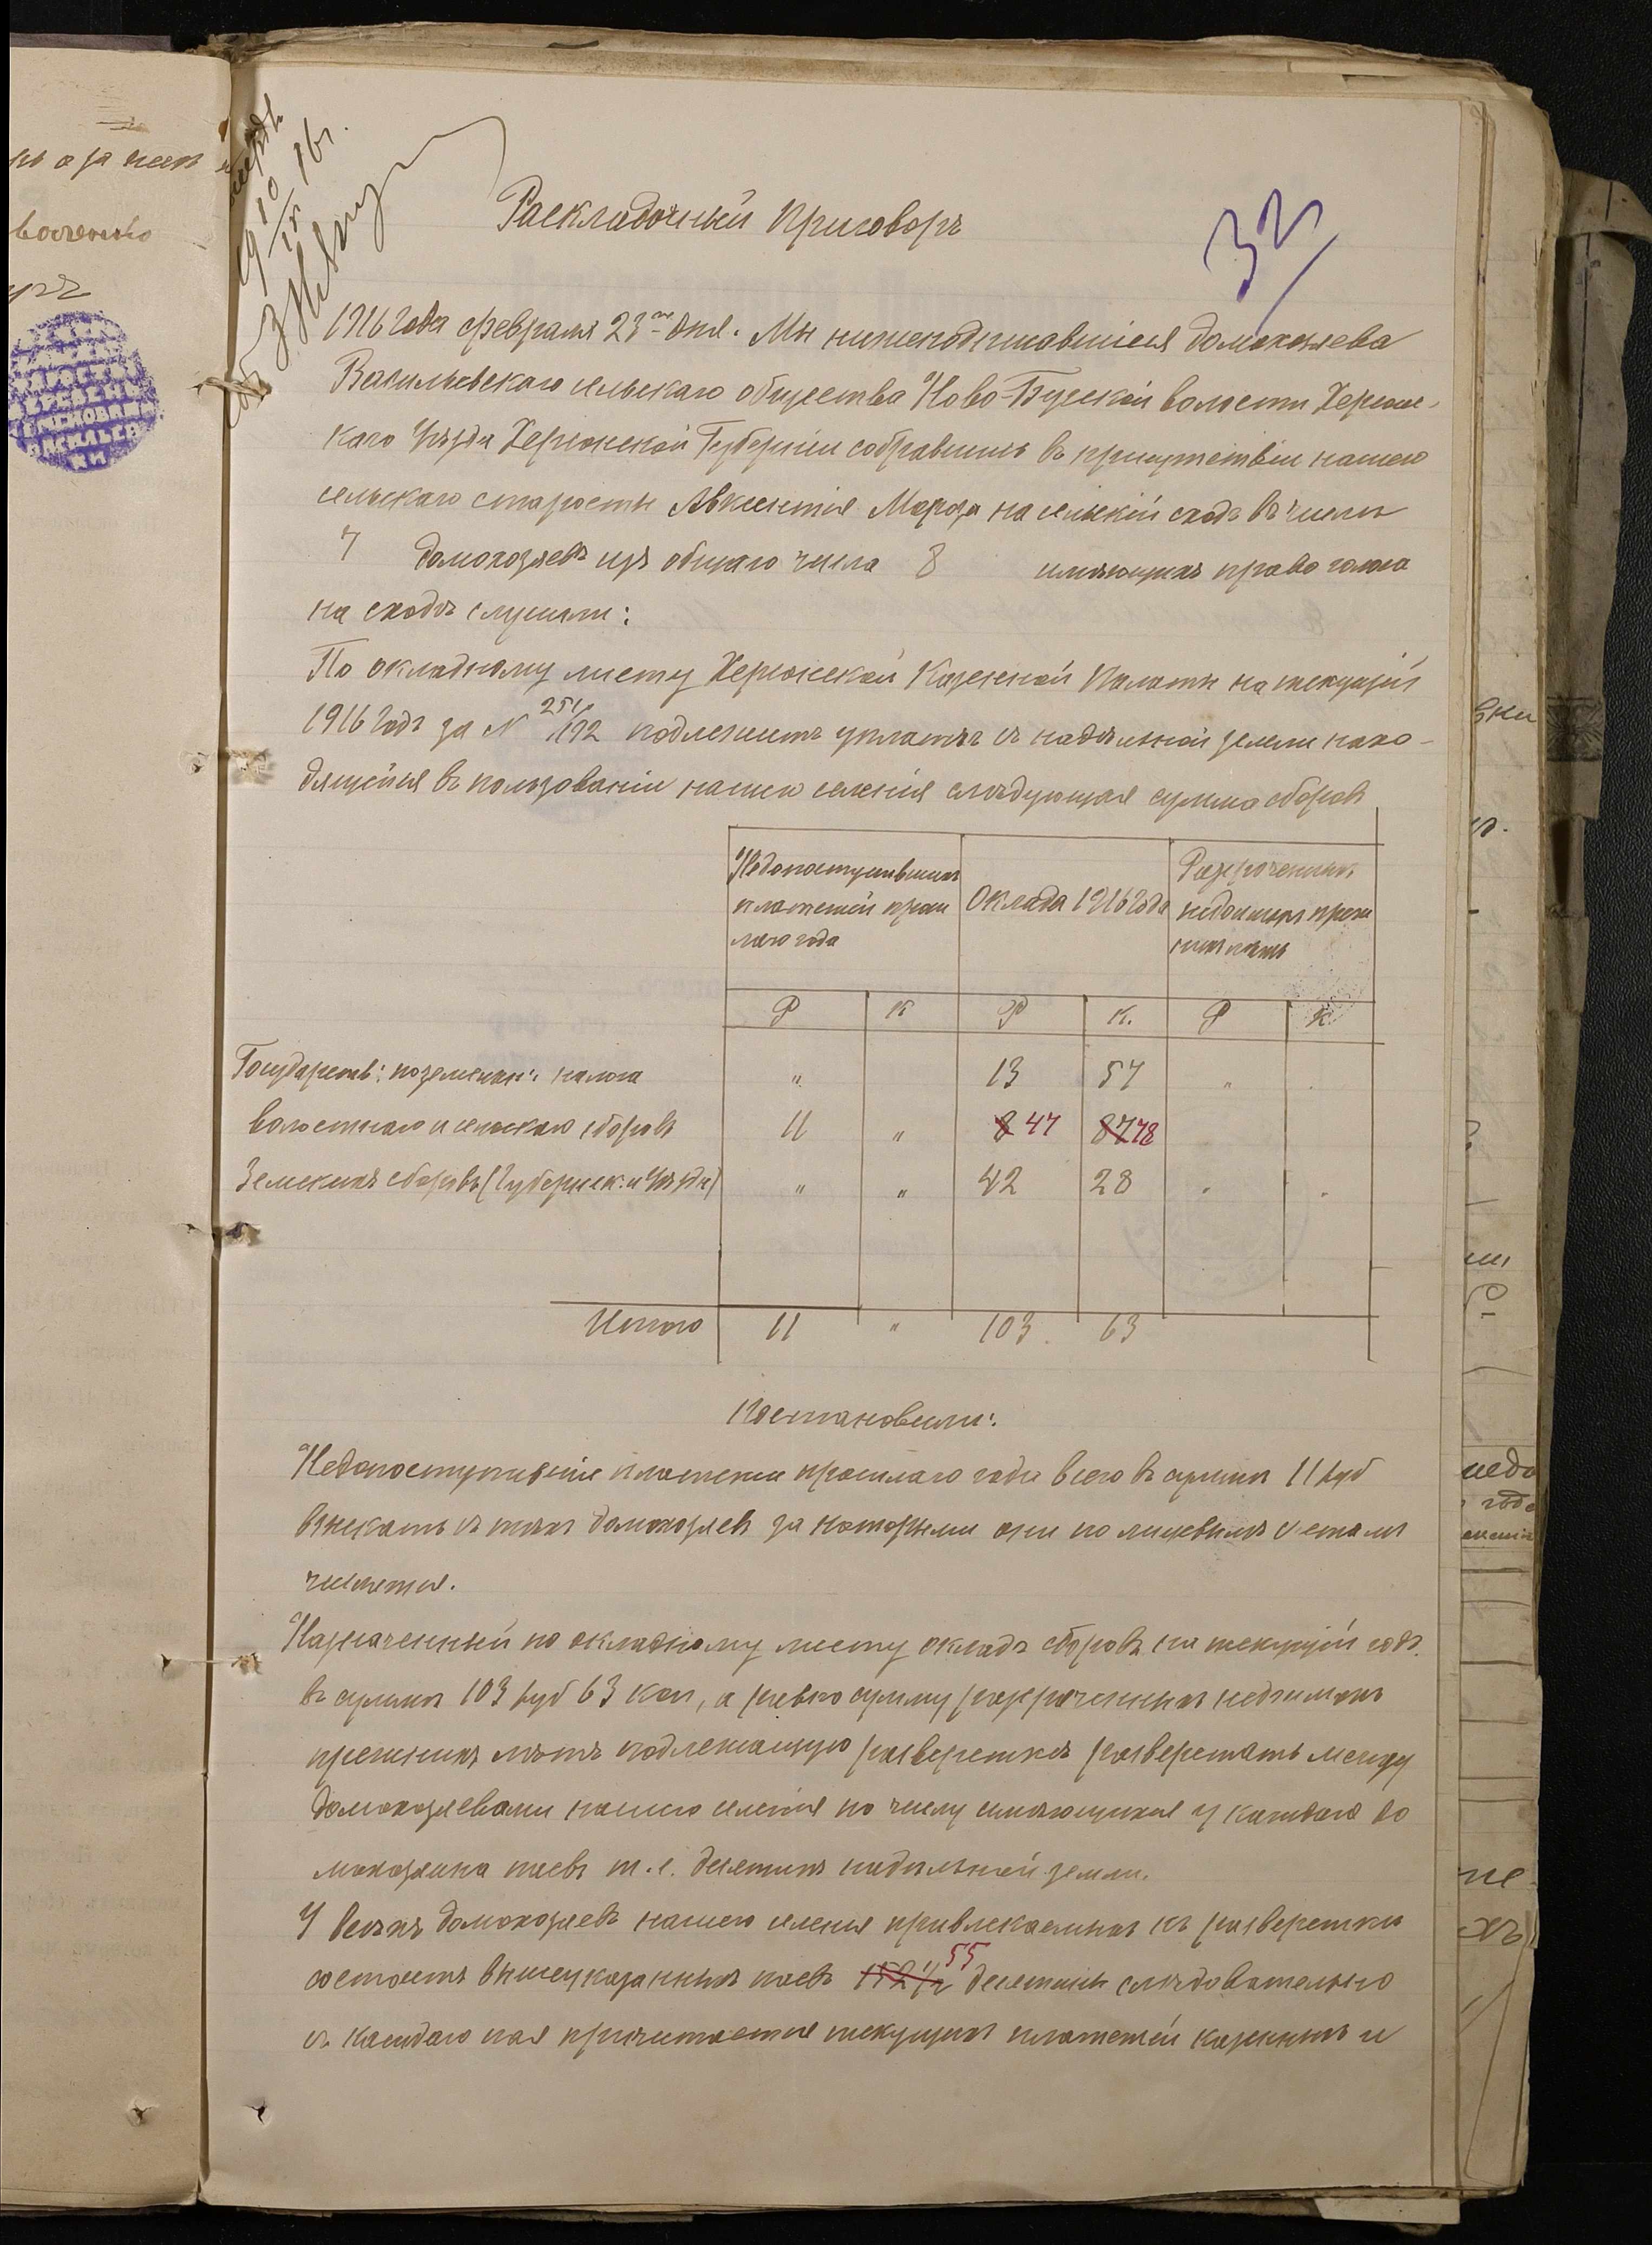 Раскладочный Приговоръ
32
1916 года февраля 23го дня. Мы нижеподписавшіеся домохозяева
Васильевскаго сельскаго общества Ново-Бугской волости Херсонс-
каго Уѣзда Херсонской Губерніи собравшись въ присутствіи нашего
сельскаго старосты Авксентія Мороза на сельскій сходъ въ числѣ
7 домохозяевъ изъ общаго числа 8 имѣющихъ право голоса
на сходѣ слушали:
По окладному листу Херсонской Казенной Палаты на текущій
1916 годъ за № 251/192 подлежитъ уплатѣ съ надѣльной земли нахо-
дящейся въ пользованіи нашего селенія слѣдующая сумма сборовъ
Недопоступившихъ платежей прошлаго года
Оклада 1916 года
Разсроченныхъ недоимокъ прежнихъ лѣтъ
Р К Р К. Р К.
Государств: поземельн: налога " 13 57 "
волостного и сельскаго сборовъ 11 " 8 47 87 78
Земскихъ сборовъ (Губернск. и Уѣздн) " " 42 28
Итого 11 " 103 63
Постановили:
Недопоступившіе платежи прошлаго года всего въ суммѣ 11 руб
взыскать съ тѣхъ домохозяевъ за которыми они по лицевымъ счетамъ
числятся.
Назначенный по окладному листу окладъ сборовъ на текущій годъ
въ суммѣ 103 руб 63 коп, а равно сумму разсроченныхъ недоимокъ
прежнихъ лѣтъ подлежащую разверсткѣ разверстать между
домохозяевами нашего селенія по числу имѣющихся у каждаго до
мохозяина паевъ т.е. десятинъ надѣльной земли.
У всѣхъ домохозяевъ нашего селенія привлекаемыхъ къ разверсткѣ
состоитъ вышеуказанныхъ паевъ 152 1/2 55 десятинъ слѣдовательно
съ каждаго пая причитается текущихъ платежей казенныхъ и